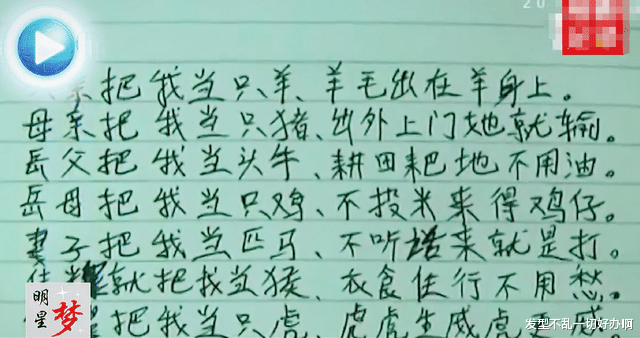 20
亲把我当只羊、羊毛出在羊身上。
母亲把我当只猪、出外上门她就输。
岳父把我当头牛、耕田耙地不用油。
岳母把我当只鸡、不投米来得鸡仔。
妻子把我当匹马、不听话来就是打。
就把我当猴、衣食住行不用愁。
把我当只虎、虎虎生威虎威。
明星梦
发型不乱一切好办啊